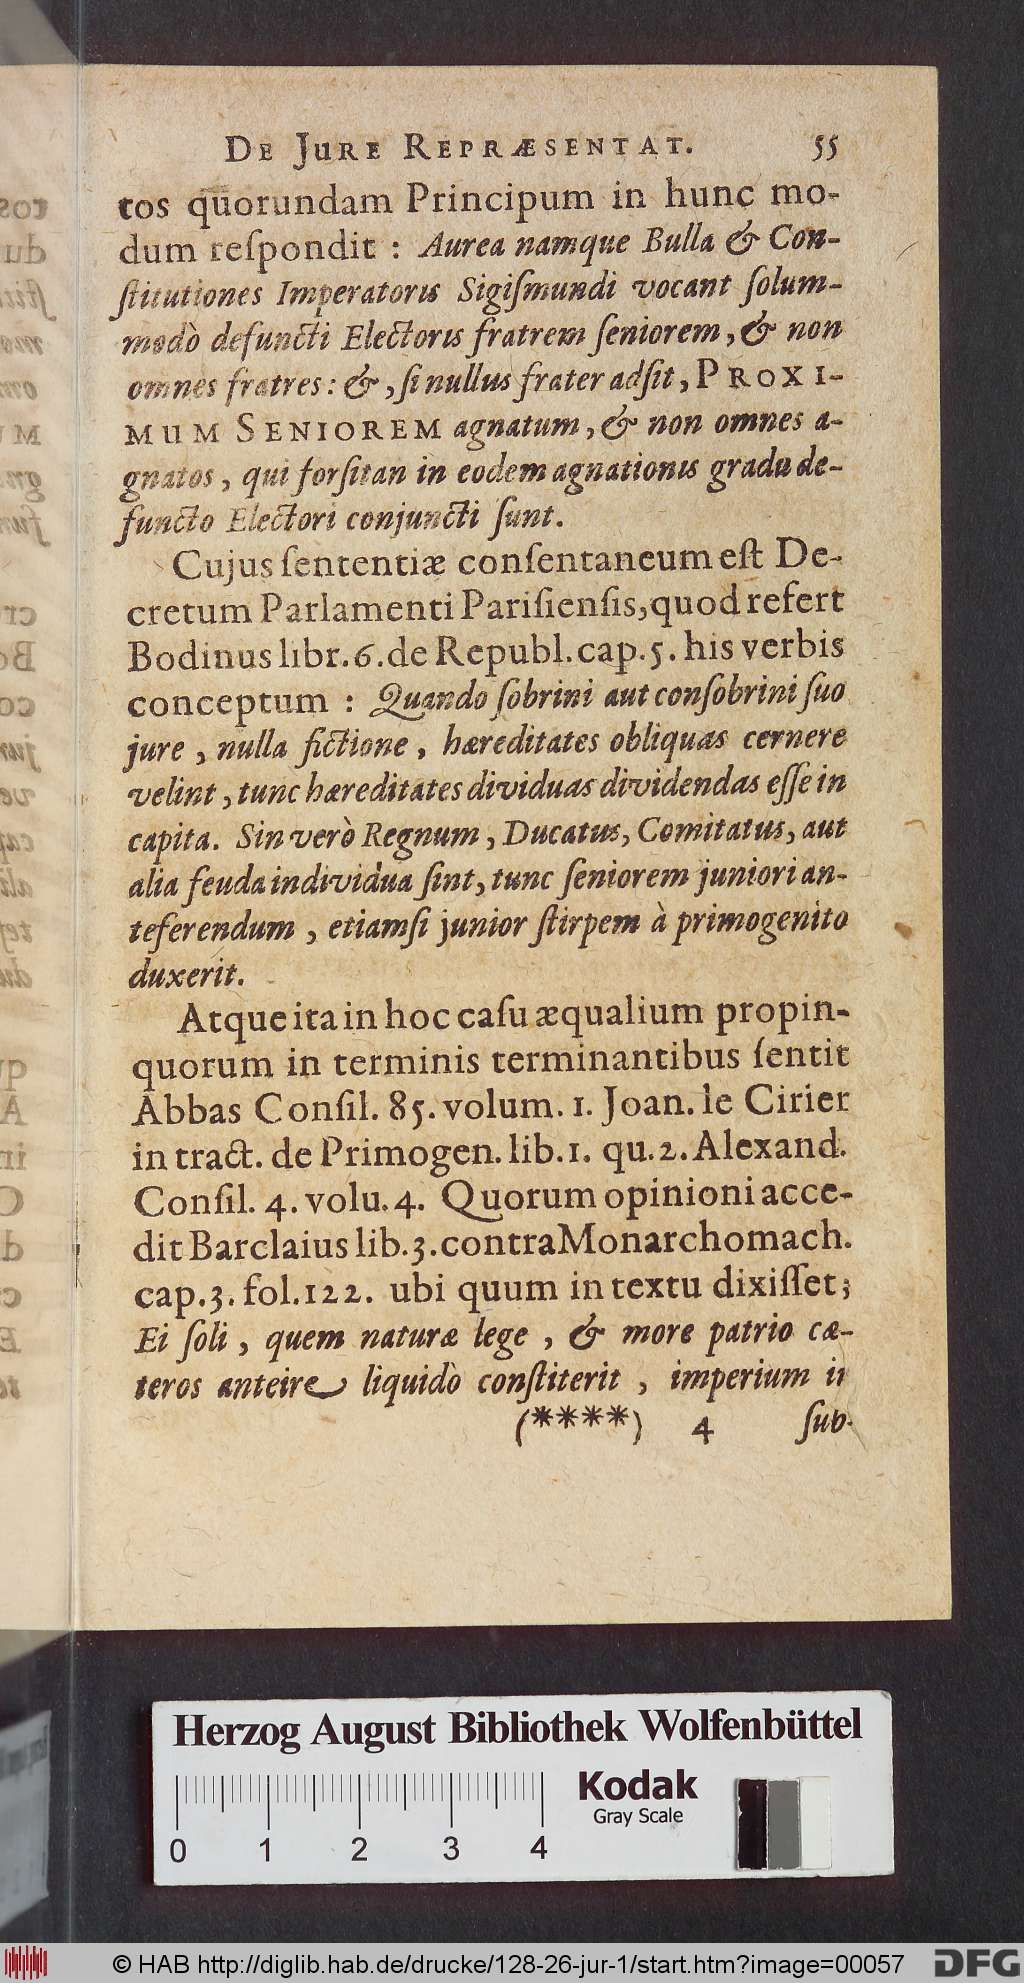 DE JURE REPRÆSENTAT. 55
tos quorundam Principum in hunc mo-
dum reſpondit : Aurea namque Bulla & Con-
ſtitutiones Imperatoris Sigiſmundi vocant ſolum-
modò defuncti Electoris fratrem ſeniorem, & non
omnes fratres: &, ſi nullus frater adſit, PROXI-
MUM SENIOREM agnatum, & non omnes a-
gnatos, qui forſitan in eodem agnationis gradu de-
functo Electori conjuncti ſunt.
Cujus ſententiæ conſentaneum eſt De-
cretum Parlamenti Pariſienſis, quod refert
Bodinus libr. 6. de Republ. cap. 5. his verbis
conceptum : Quando ſobrini aut conſobrini ſuo
jure, nulla fictione, hæreditates obliquas cernere
velint, tunc hæreditates dividuas dividendas eſſe in
capita. Sin verò Regnum, Ducatus, Comitatus, aut
alia feuda individua ſint, tunc ſeniorem juniori an-
teferendum, etiamſi junior ſtirpem à primogenito
duxerit.
Atque ita in hoc caſu æqualium propin-
quorum in terminis terminantibus ſentit
Abbas Conſil. 85. volum. 1. Joan. le Cirier
in tract. de Primogen. lib. 1. qu. 2. Alexand.
Conſil. 4. volu. 4. Quorum opinioni acce-
dit Barclaius lib. 3. contra Monarchomach.
cap. 3. fol. 122. ubi quum in textu dixiſſet;
Ei ſoli, quem naturæ lege, & more patrio cæ-
teros anteire liquidò conſtiterit, imperium in
(****) 4 ſub-
Herzog August Bibliothek Wolfenbüttel
Kodak
Gray Scale
0 1 2 3 4
© HAB http://diglib.hab.de/drucke/128-26-jur-1/start.htm?image=00057
DFG